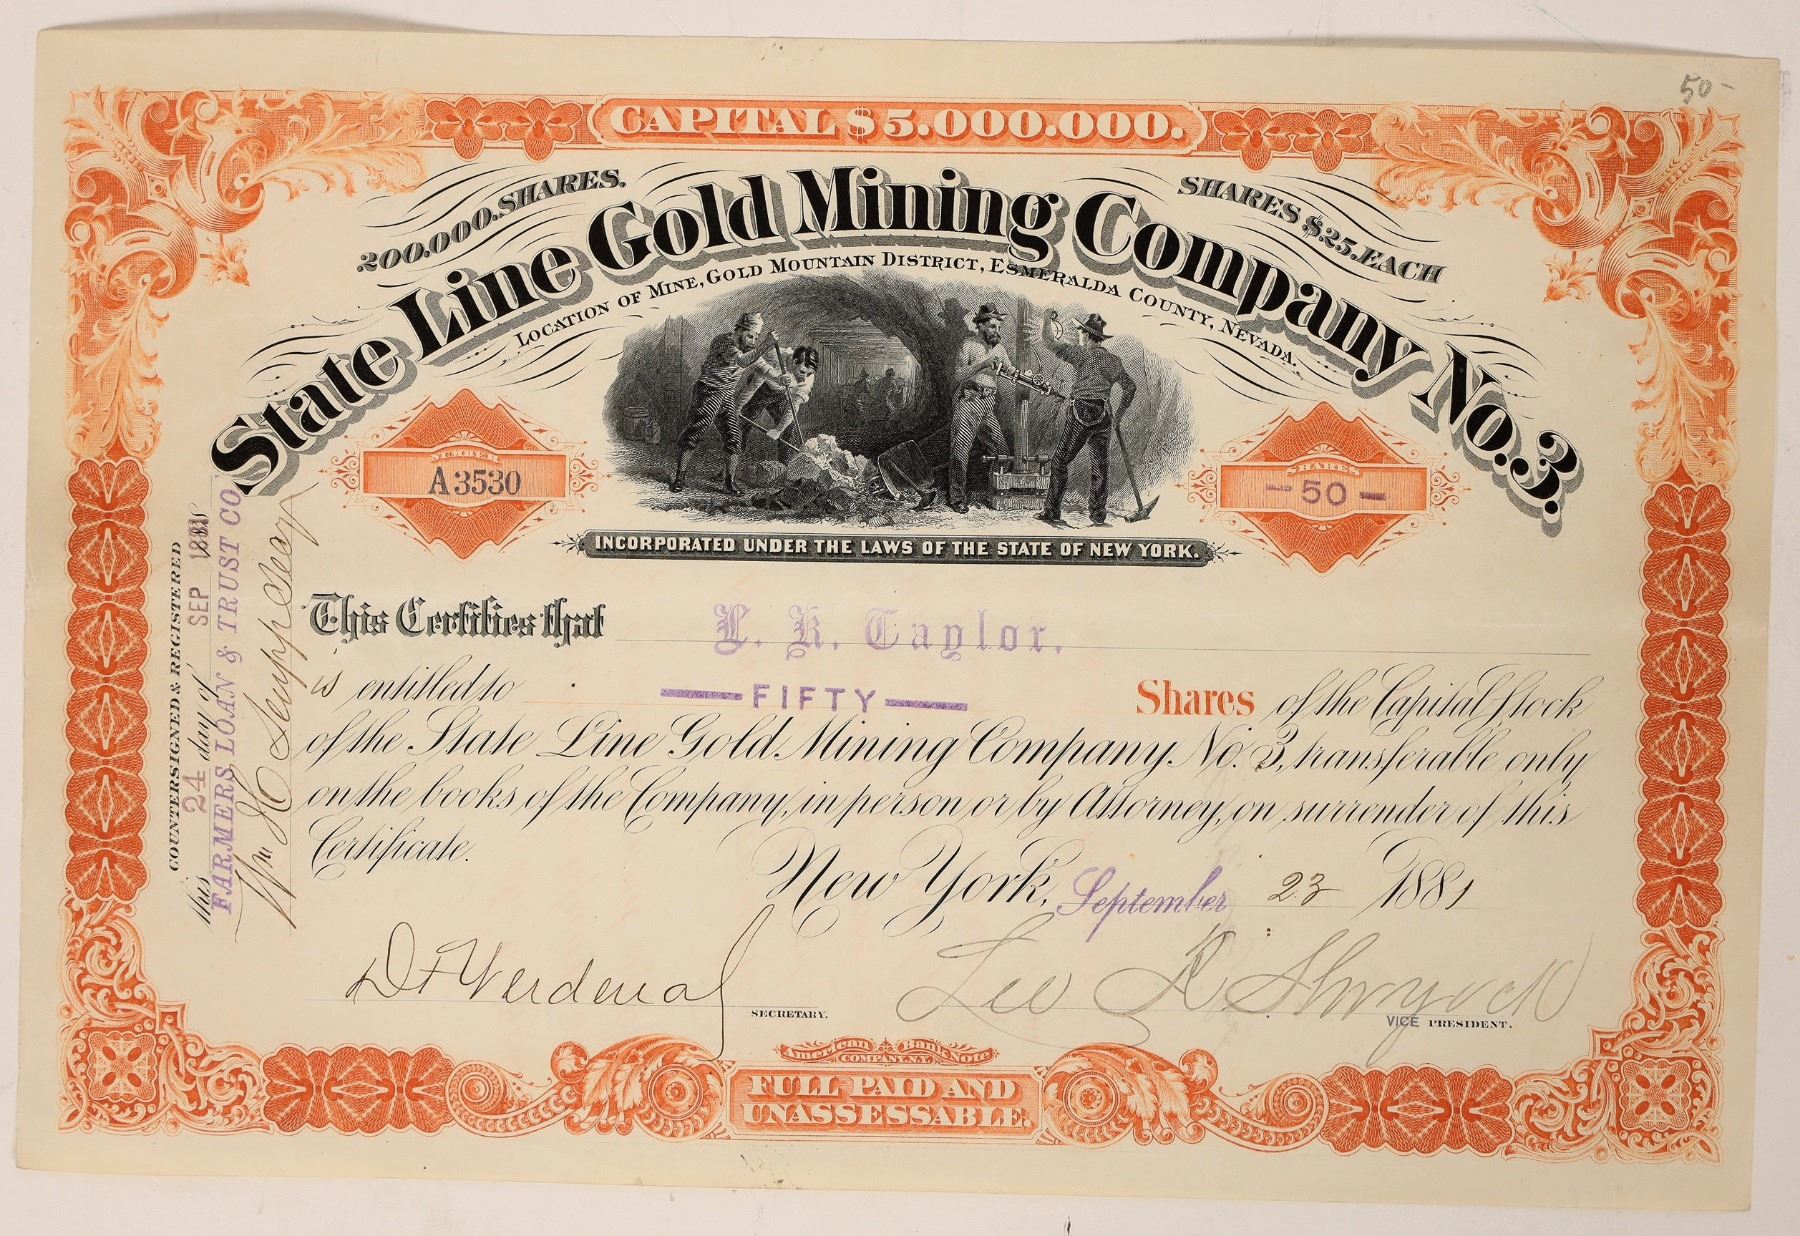 50-
CAPITAL $5.000.000.
200.000. SHARES.
SHARES $.25. EACH
State Line Gold Mining Company No. 3.
LOCATION OF MINE, GOLD MOUNTAIN DISTRICT, ESMERALDA COUNTY, NEVADA.
NUMBER
A3530
SHARES
- 50 -
INCORPORATED UNDER THE LAWS OF THE STATE OF NEW YORK.
This Certifies that L. R. Taylor.
is entitled to — FIFTY — Shares of the Capital Stock
of the State Line Gold Mining Company No. 3, transferable only
on the books of the Company, in person or by Attorney, on surrender of this
Certificate.
New York, September 23 1881
D F Verdenal
SECRETARY.
Lee R Shryock
VICE PRESIDENT.
COUNTERSIGNED & REGISTERED
this 24 day of SEP 1881
FARMERS LOAN & TRUST CO
Wm H
American Bank Note
COMPANY, N.Y.
FULL PAID AND
UNASSESSABLE.